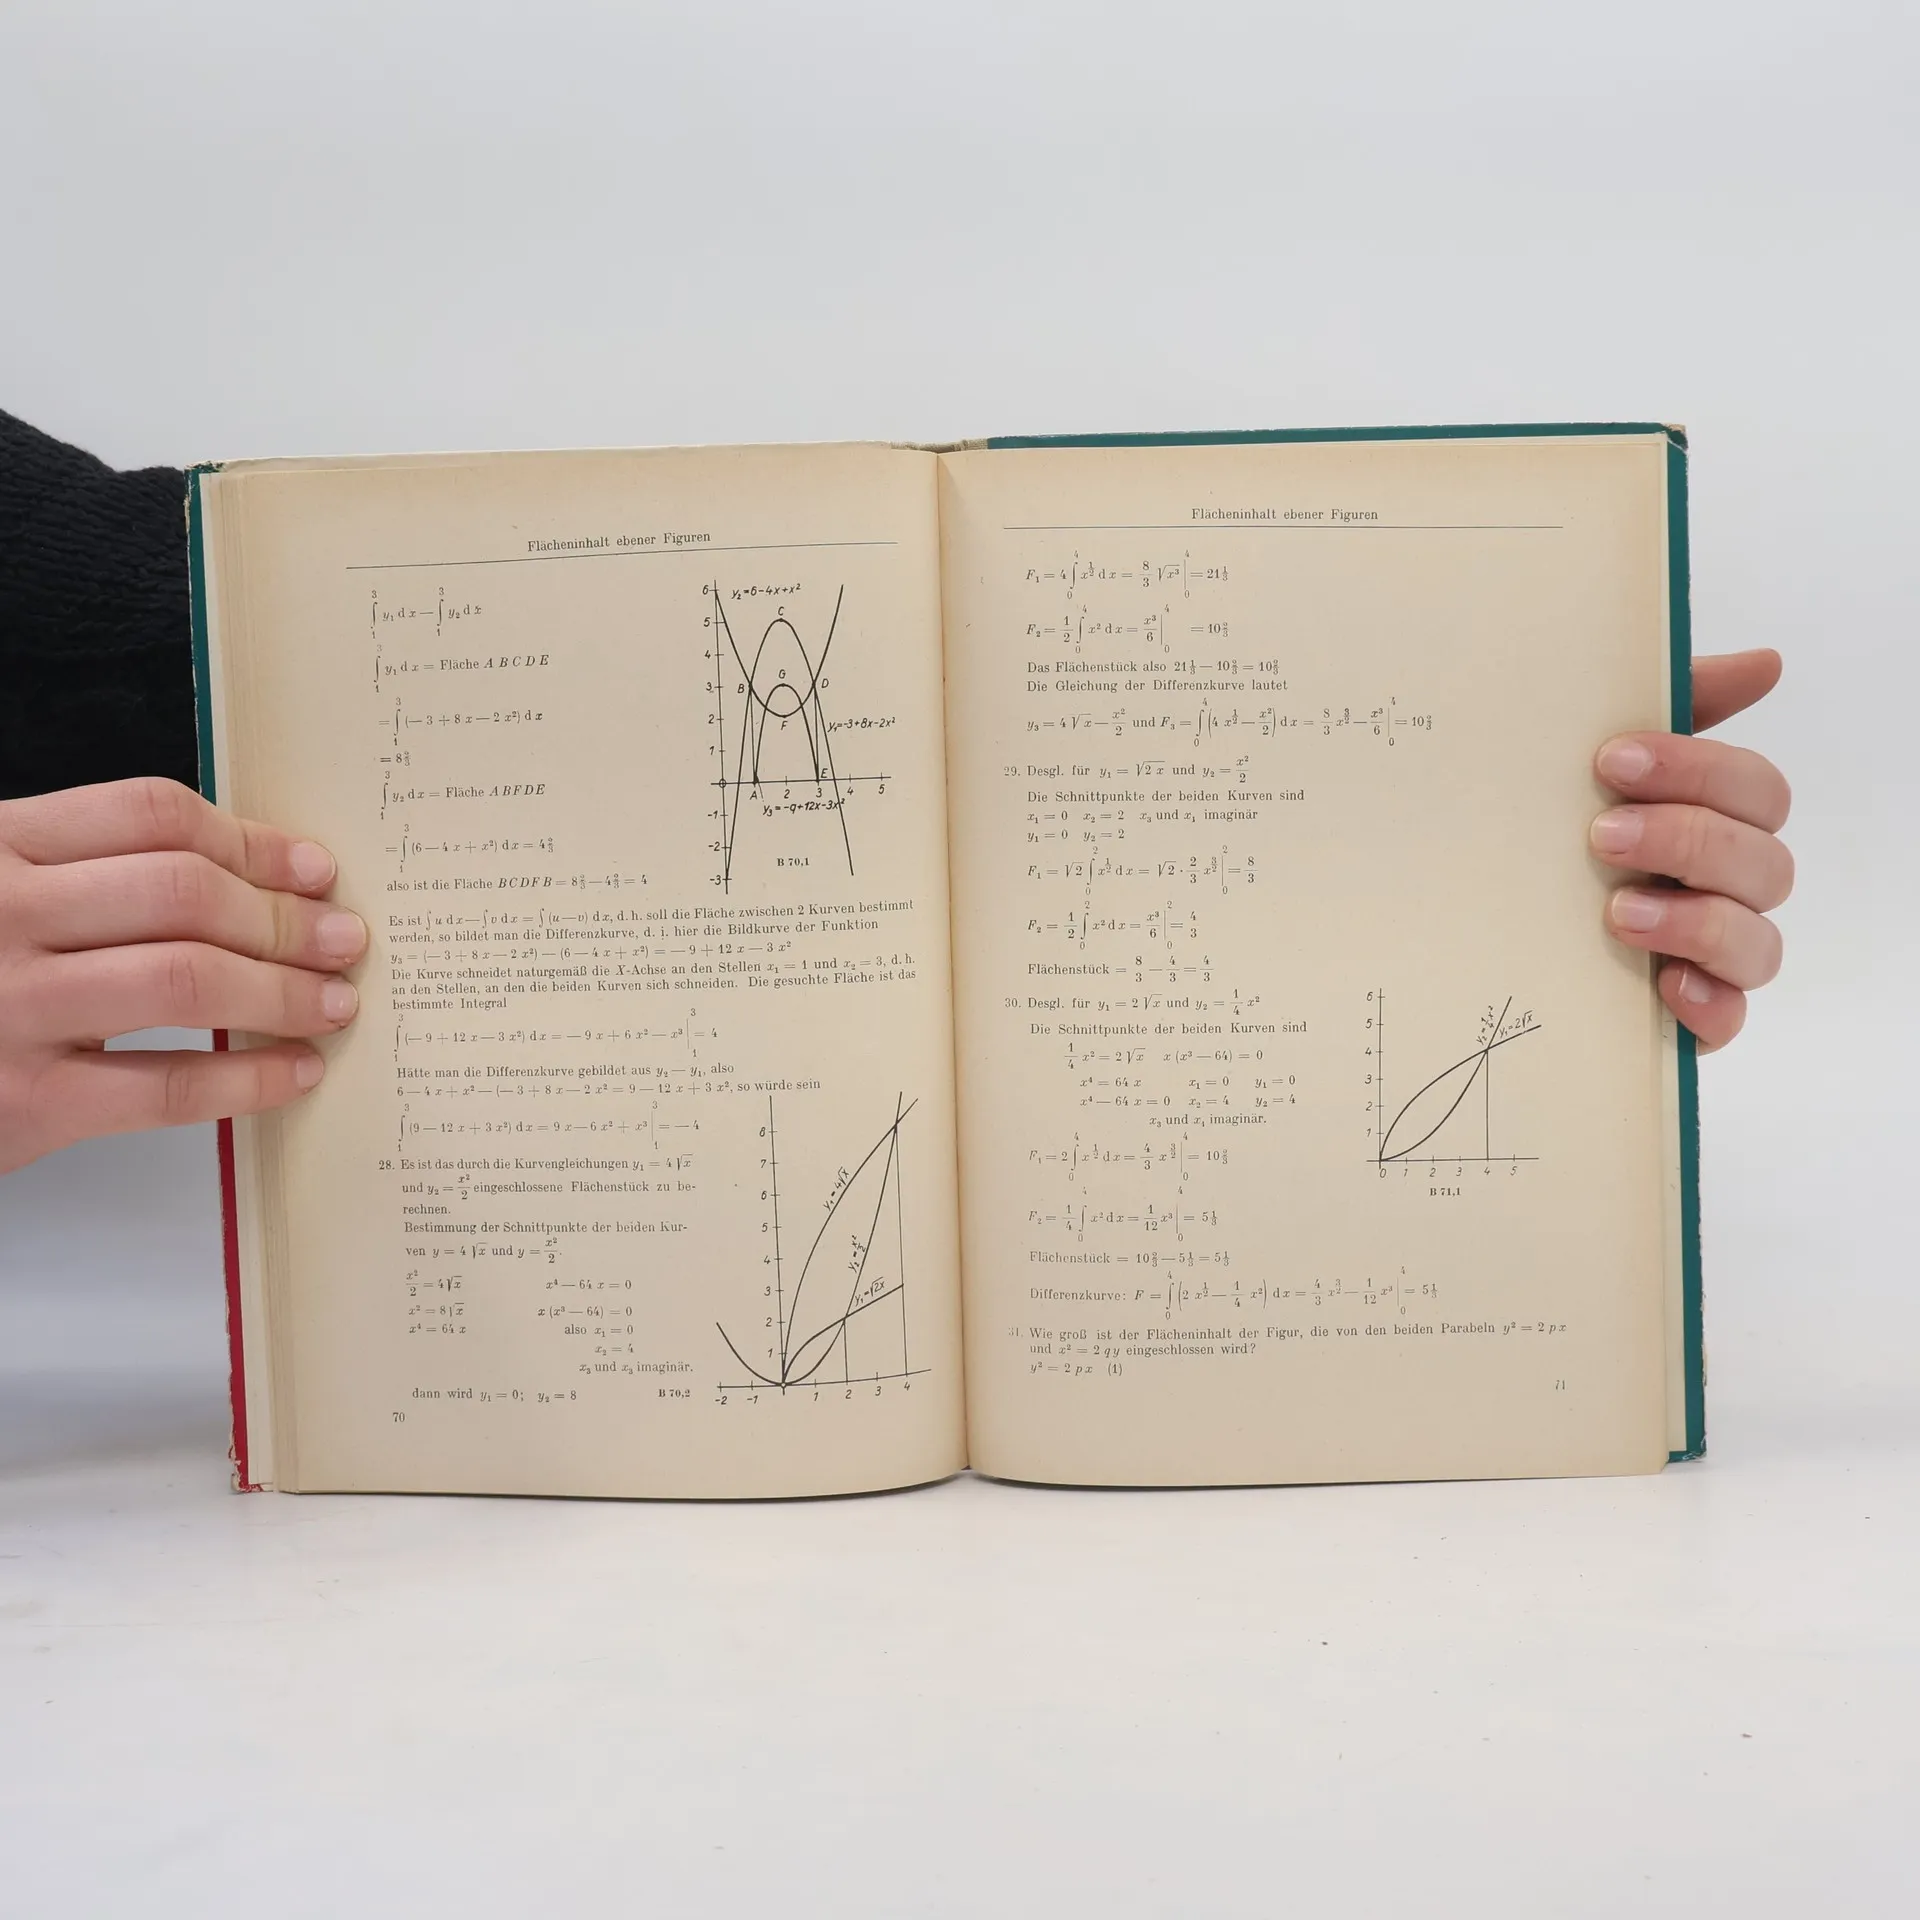 Flächeninhalt ebener Figuren
3 3
∫ y₁ d x — ∫ y₂ d x
1 1
3
∫ y₁ d x = Fläche A B C D E
1
3
= ∫ (— 3 + 8 x — 2 x²) d x
1
= 8⅔
3
∫ y₂ d x = Fläche A B F D E
1
3
= ∫ (6 — 4 x + x²) d x = 4⅔
1
also ist die Fläche B C D F B = 8⅔ — 4⅔ = 4
6 y₂=6-4x+x²
C
5
4
G
3 B D
2 F y₁=-3+8x-2x²
1
E
A 2 3 4 5
y₃=-9+12x-3x²
-1
-2
B 70,1
-3
Es ist ∫ u d x — ∫ v d x = ∫ (u — v) d x, d. h. soll die Fläche zwischen 2 Kurven bestimmt
werden, so bildet man die Differenzkurve, d. i. hier die Bildkurve der Funktion
y₃ = (— 3 + 8 x — 2 x²) — (6 — 4 x + x²) = — 9 + 12 x — 3 x²
Die Kurve schneidet naturgemäß die X-Achse an den Stellen x₁ = 1 und x₂ = 3, d. h.
an den Stellen, an den die beiden Kurven sich schneiden. Die gesuchte Fläche ist das
bestimmte Integral
3 3
∫ (— 9 + 12 x — 3 x²) d x = — 9 x + 6 x² — x³ | = 4
1 1
Hätte man die Differenzkurve gebildet aus y₂ — y₁, also
6 — 4 x + x² — (— 3 + 8 x — 2 x² = 9 — 12 x + 3 x², so würde sein
3 3
∫ (9 — 12 x + 3 x²) d x = 9 x — 6 x² + x³ | = — 4
1 1
28. Es ist das durch die Kurvengleichungen y₁ = 4 √x
und y₂ = x²/2 eingeschlossene Flächenstück zu be-
rechnen.
Bestimmung der Schnittpunkte der beiden Kur-
ven y = 4 √x und y = x²/2.
x²/2 = 4 √x x⁴ — 64 x = 0
x² = 8 √x x (x³ — 64) = 0
x⁴ = 64 x also x₁ = 0
x₂ = 4
x₃ und x₃ imaginär.
dann wird y₁ = 0; y₂ = 8 B 70,2
8
7
6 y₁=4√x
5
4 y₂=x²/2
3 y₁=√2x
2
1
-2 -1 1 2 3 4
70
Flächeninhalt ebener Figuren
4 4
F₁ = 4 ∫ x^½ d x = 8/3 √x³ | = 21⅓
0 0
4 4
F₂ = 1/2 ∫ x² d x = x³/6 | = 10⅔
0 0
Das Flächenstück also 21⅓ — 10⅔ = 10⅔
Die Gleichung der Differenzkurve lautet
4 4
y₃ = 4 √x — x²/2 und F₃ = ∫ (4 x^½ — x²/2) d x = 8/3 x^3/2 — x³/6 | = 10⅔
0 0
29. Desgl. für y₁ = √2 x und y₂ = x²/2
Die Schnittpunkte der beiden Kurven sind
x₁ = 0 x₂ = 2 x₃ und x₄ imaginär
y₁ = 0 y₂ = 2
2 2
F₁ = √2 ∫ x^½ d x = √2 · 2/3 x^3/2 | = 8/3
0 0
2 2
F₂ = 1/2 ∫ x² d x = x³/6 | = 4/3
0 0
Flächenstück = 8/3 — 4/3 = 4/3
30. Desgl. für y₁ = 2 √x und y₂ = 1/4 x²
Die Schnittpunkte der beiden Kurven sind
1/4 x² = 2 √x x (x³ — 64) = 0
x⁴ = 64 x x₁ = 0 y₁ = 0
x⁴ — 64 x = 0 x₂ = 4 y₂ = 4
x₃ und x₄ imaginär.
4 4
F₁ = 2 ∫ x^½ d x = 4/3 x^3/2 | = 10⅔
0 0
6
5 y₂=1/4 x² y₁=2√x
4
3
2
1
0 1 2 3 4 5
B 71,1
4 4
F₂ = 1/4 ∫ x² d x = 1/12 x³ | = 5⅓
0 0
Flächenstück = 10⅔ — 5⅓ = 5⅓
4 4
Differenzkurve: F = ∫ (2 x^½ — 1/4 x²) d x = 4/3 x^3/2 — 1/12 x³ | = 5⅓
0 0
31. Wie groß ist der Flächeninhalt der Figur, die von den beiden Parabeln y² = 2 p x
und x² = 2 q y eingeschlossen wird?
y² = 2 p x (1)
71